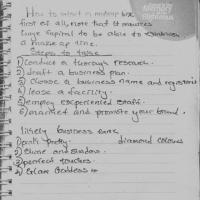 How to start a makeup line
first of all, note that it requires
large capital to be able to establish
a makeup line.
Steps to take
1) Conduct a thorough research.
2) draft a business plan.
3) Choose a business name and register it
4) lease a facility
5) employ experienced staff.
6) market and promote your brand.
likely business name
1) pink pretty. diamond colours
2) Shine and shadow.
3) perfect touches.
4) Glam Goddess